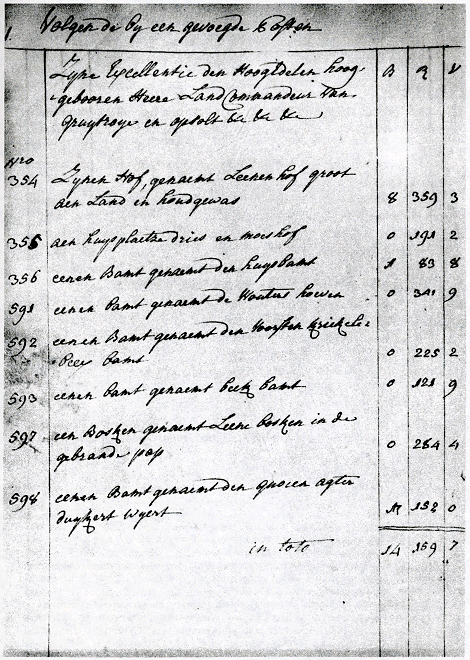 Volgen de by een gevoegde Costen
Zyne Excellentie den Hoogedelen hoog- B R V
gebooren Heere LandCommandeur van
gruytroye en opsolt &a &a &a
Nro
354 Zynen Hof, genaemt Leenen hof groot
aen Land en houdgewas 8 359 3
355 aen huysplaetze dries en moeshof 0 191 2
356 eenen Bamt genaemt den huysbamt 1 83 8
591 eenen bamt genaemt de Wouters hoeven 0 341 9
592 eenen Bamt genaemt den Voorsten
bamt 0 225 2
593 eenen bamt genaemt beek bamt 0 121 9
597 een Bosken genaemt Leene bosken in de
gebrande pap 0 284 4
598 eenen Bamt genaemt den agter
wyert 152 0
in tote 14 159 7